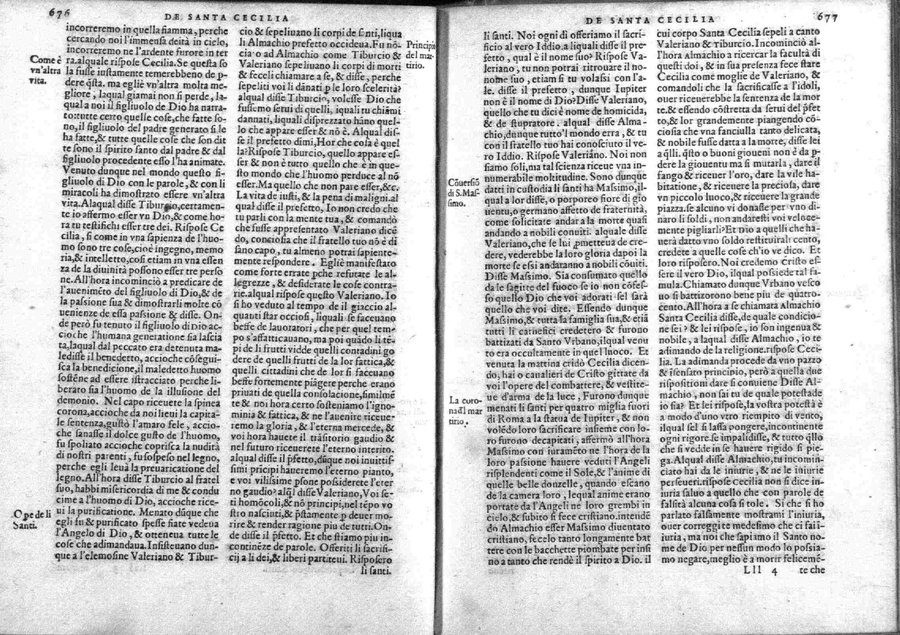 676
DE SANTA CECILIA
incorreremo in quella fiamma, perche
cercando noi l'immensa deità in cielo,
incorreremo ne l'ardente furore in ter
ra. alquale rispose Cecilia. Se questa so
la fusse instamente temerebbeno de per
dere q̃sta. ma egliè vn'altra molta me-
gliore, laqual giamai non si perde, la-
qual a noi il figliuolo de Dio ha narra-
to: tutte certo quelle cose, che fatte so-
no, il figliuolo del padre generato si le
ha fatte, & tutte quelle cose che son dit
te sono il spirito santo dal padre & dal
figliuolo procedente esso l'ha animate.
Venuto dunque nel mondo questo fi-
gliuolo di Dio con le parole, & con li
miracoli ha dimostrato essere vn'altra
vita. Alaqual disse Tiburcio, certamen-
te io affermo esser vn Dio, & come ho-
ra tu testifichi esser tre dei. Rispose Ce
cilia, si come in vna sapienza de l'huo-
mo sono tre cose, cioè ingegno, memo
ria, & intelletto, così etiam in vna essen
za de la diuinità possono esser tre perso
ne. All'hora incominciò a predicare de
l'auenimẽto del figliuolo di Dio, & de
la passione sua & dimostrarli molte cõ
uenienze de essa passione & disse. On-
de però fu tenuto il figliuolo di Dio ac-
ciò che l'humana generatione sia lascia
ta, laqual dal peccato era detenuta ma-
ledisse il benedetto, accioche cõsegui-
sca la benedicione, il maledetto huomo
sostẽne ad essere istracciato perche li-
berato sia l'huomo de la illusione del
demonio. Nel capo riceuete la spinea
corona, accioche da noi lieui la capita-
le sentenza, gustò l'amaro fele, accio-
che sanasse il dolce gusto de l'huomo,
fu spoliato accioche coprisca la nudità
di nostri parenti, fu sospeso nel legno,
perche egli leuà la preuaricatione del
legno. All'hora disse Tiburcio al fratel
suo, habbi misericordia di me & condu
cime a l'huomo di Dio, accioche rice-
ui la purificatione. Menato dũque che
egli fu & purificato spesse fiate vedeua
l'Angelo di Dio, & otteneua tutte le
cose che adimandaua. Insisteuano dun-
que a l'elemosine Valeriano & Tibur-
Come è
vn'altra
vita.
Ope de li
Santi.
cio & sepeliuano li corpi de sãnti, liqua
li Almachio prefetto occideua. Fu nõ-
ciato ad Almachio come Tiburcio &
Valeriano sepeliuano li corpi di morti
& feceli chiamare a se, & disse, perche
sepeliti voi li dãnati p̱ le loro scelerità?
alqual disse Tiburcio, volesse Dio che
fussemo serui di quelli, iquali tu chiãmi
dannati, liquali disprezato hãno quel-
lo che appare esser & nõ è. Alqual dis-
se il prefetto dimi, Hor che cosa è quel
la? Rispose Tiburcio, quello appare es-
ser & non è tutto quello che è in que
sto mondo che l'huomo perduce al nõ
esser. Ma quello che non pare esser, &c.
La vita de iusti, & la pena di maligni. al
qual disse il prefetto, Io non credo che
tu parli con la mente tua, & comandò
che fusse appresentato Valeriano dicẽ
do, conciosia che il fratello tuo nõ è di
sano capo, tu almeno potrai sapiente-
mente respondere. Egliè manifestato
come forte errate pche refutate le al-
legrezze, & desiderate le cose contra-
rie. alqual rispose questo Valeriano, Io
si ho veduto al tempo de il giaccio al-
quanti star occiosi, liquali se faceuano
beffe de lauoratori, che per quel tem-
po s'affatticauano, ma poi quãdo li tẽ-
pi de li frutti vidde quelli contadini go
dere de quelli frutti de la lor fattica, &
quelli cittadini che de lor si faceuano
beffe fortemente piãgere perche erano
priuati de quella consolatione, similmẽ
te & noi hora certo sosteniamo l'igno-
minia & fattica, & ne l'auenire riceue-
remo la gloria, & l'eterna mercede, &
voi hora hauete il trãsitorio gaudio &
nel futuro riceuerete l'eterno interito.
alqual disse il p̱fetto, dũque noi inuittis
simi prĩcipi haueremo l'eterno pianto,
e voi vilissime p̱sone possiderete l'eter
no gaudio? alq̃l disse Valeriano, Voi se-
ti homẽcoli, & nõ prĩcipi, nel tẽpo vo
stro nasciuti, & p̱stamente p̱ deuer mo-
rire & render ragione piu de tutti. On-
de disse il p̱fetto. Et che stiamo piu in-
continẽze de parole. Offeriti li sacrifi-
cij a li dei, & liberi partiteui. Risposero
li santi.
Principia
del mar-
tirio.
DE SANTA CECILIA
677
li santi. Noi ogni dì offeriamo il sacri-
ficio al vero Iddio. a liquali disse il pre-
fetto, qual è il nome suo? Rispose Va-
leriano, tu non potrai ritrouare il no-
nome suo, etiam si tu volassi con l'a-
le. disse il prefetto, dunque Iupiter
non è il nome di Dio? Disse Valeriano,
quello che tu dici è nome de homicida,
& de stupratore. alqual disse Alma-
chio, dunque tutto'l mondo erra, & tu
con il fratello tuo hai conosciuto il ve-
ro Iddio. Rispose Valeriano. Noi non
siamo soli, ma tal scienza riceue vna in-
numerabile moltitudine. Sono dunque
datti in custodia li santi ha Massimo, il-
qual a lor disse, o porporeo fiore di gio
uentu, o germano affetto de fraternità,
come solicitate andar a la morte quasi
andando a nobili conuiti. alquale disse
Valeriano, che se lui p̱metteua de cre-
dere, vederebbe la lor gloria dapoi la
morte se essi andaranno a nobili cõuiti.
Disse Massimo. Sia consumato quello
da le sagitte del fuoco se io non cõfes-
so quello Dio che voi adorati sel sarà
quello che voi dite. Essendo dunque
Massimo, & tutta la famiglia sua, & etiã
tutti li carnefici credetero & furono
battizati da Santo Vrbano, ilqual venu
to era occultamente in quel luoco. Et
venuta la mattina cridò Cecilia dicen-
do, hai o canalieri de Cristo gittate da
voi l'opere del combattere, & vestite-
ue d'arma de la luce, Furono dunque
menati li santi per quatro miglia fuori
di Roma a la statua de Iupiter, & non
volẽdo loro sacrificare insieme con lo-
ro furono decapitati, affermò all'hora
Massimo con iuramẽto ne l'hora de la
loro passione hauere veduti l'Angeli
risplendenti come il Sole, & l'anime di
quelle belle donzelle, quando escano
de la camera loro, lequal anime erano
portate da l'Angeli ne loro grembi in
cielo, & subito si fece cristiano. intendẽ
dõ Almachio esser Massimo diuentato
cristiano, fecelo tanto longamente bat
tere con le bacchette piombate per insi-
no a tanto che rendè il spirito a Dio. il
Cõuersiõ
di S. Mas-
simo.
La coro-
na dl mar
tirio.
cui corpo Santa Cecilia sepelì a canto
Valeriano & Tiburcio. Incominciò al-
l'hora Almachio a ricercar la facultà di
questi doi, & in sua presenza fece stare
Cecilia come moglie de Valeriano, &
comandoli che la sacrificasse a l'idoli,
ouer riceuerebbe la sentenza de la mor
te, & essendo cõstretta da serui del p̱fet-
to, & lor grandemente piangendo cõ-
ciosia che vna fanciulla tanto delicata,
& nobile fusse datta a la morte, disse lei
aq̃lli. q̃sto o buoni giouenì non è da p̱-
dere la giouentu ma si mutarla, dare il
fango & riceuer l'oro, dare la vile ha-
bitatione, & riceuere la preciosa, dare
vn piccolo luoco, & riceuere la grande
piazza. se alcuno vi donasse per vno di-
naro li soldi, non andaresti voi veloce-
mente pigliarli? Et Dio a quelli che ha-
uerà datto vno soldo restituirà l cento,
credete a quelle cose ch'io ve dico. Et
loro risposero. Noi credemo Cristo es-
sere il vero Dio, ilqual possiede tal fa-
mula. Chiamato dunque Vrbano vesco
uo si battizorono bene piu de quatro-
cento. All'hora a se chiamata Almachio
Santa Cecilia disse, de quale condicio-
ne sei? & lei rispose, io son ingenua &
nobile, a laqual disse Almachio, io te
adimando de la religione. rispose Ceci-
lia. La adimanda procede da vno pazzo
& insensato principio, però a quella due
rispositioni dare si conuiene Disse Al-
machio, non sai tu de quale potestade
io sia? Et lei rispose, la vostra potestà è
a modo d'uno vtro riempito di vento,
ilqual sel si lassa pongere, incontinente
ogni rigore se impalidisse, & tutto q̃llo
che si vedde in se hauere rigido si pie-
ga. Alqual disse Almachio, tu incomin-
ciato hai da le iniurie, & ne le iniurie
perseueri. rispose Cecilia non si dice in-
iuria saluo a quello che con parole de
falsità alcuna cosa li tole. Si che si ho
parlato falsamente mostrami l'iniuria,
ouer correggi te medesimo che ci fai i-
iuria, ma noi che sapiamo il Santo no-
me de Dio, per nessun modo lo possia-
mo negare, meglio è a morir felicemẽ-
LII 4
te che